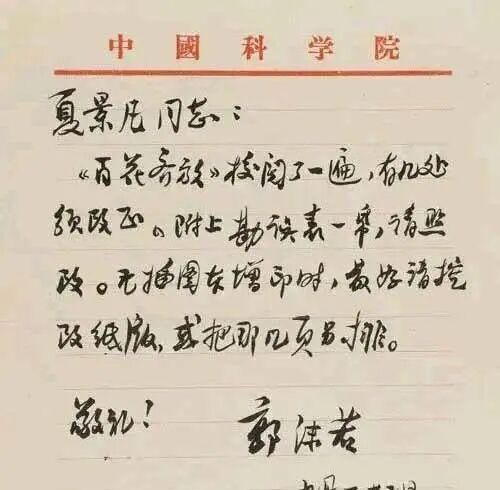 中國科学院
夏景凡同志：
《百花齐放》校阅了一遍，有九处
须改正。附上勘误表一希，请照
改。无插图本增印时，最好请挖
改纸版，或把那几页另排。
敬礼！
郭沫若